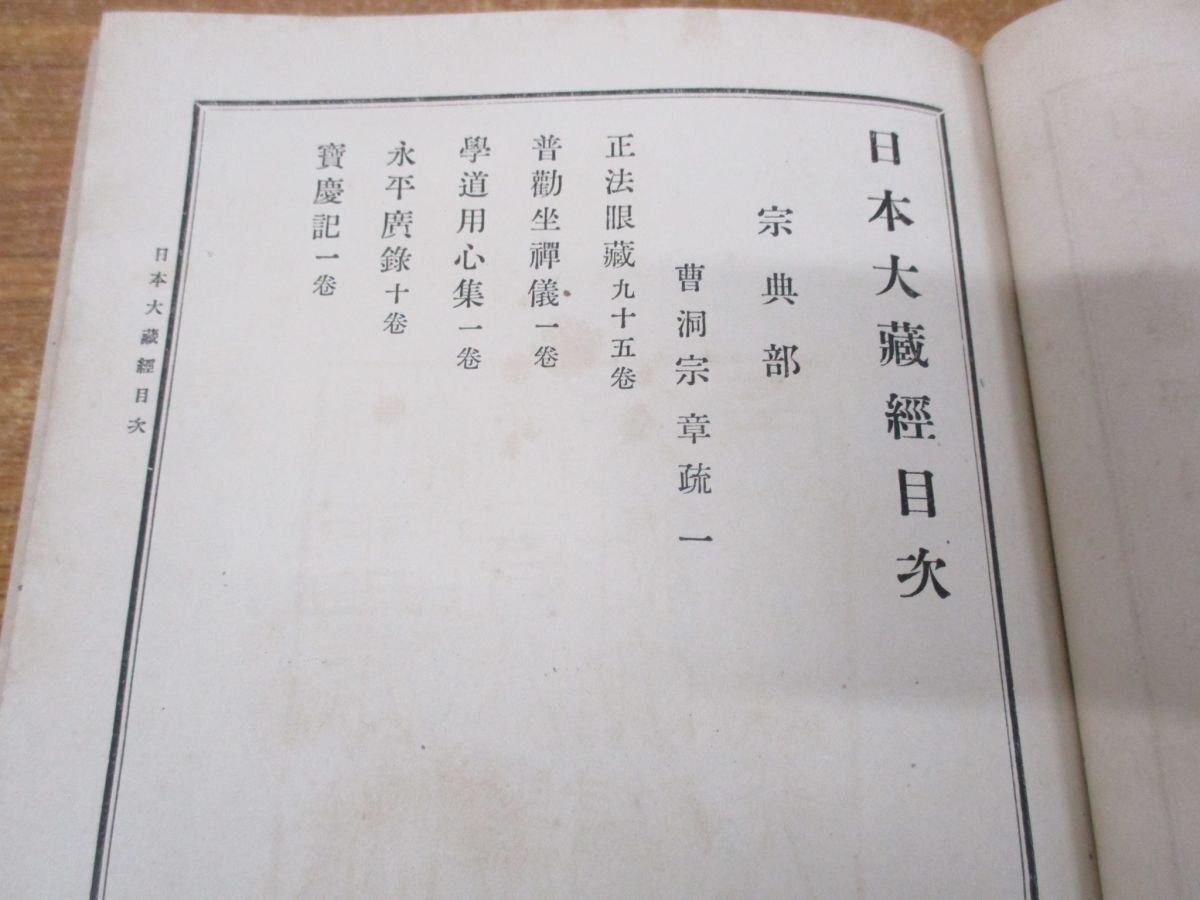 日本大藏經目次
宗典部
曹洞宗章疏一
正法眼藏九十五卷
普勸坐禪儀一卷
學道用心集一卷
永平廣錄十卷
寶慶記一卷
日本大藏經目次